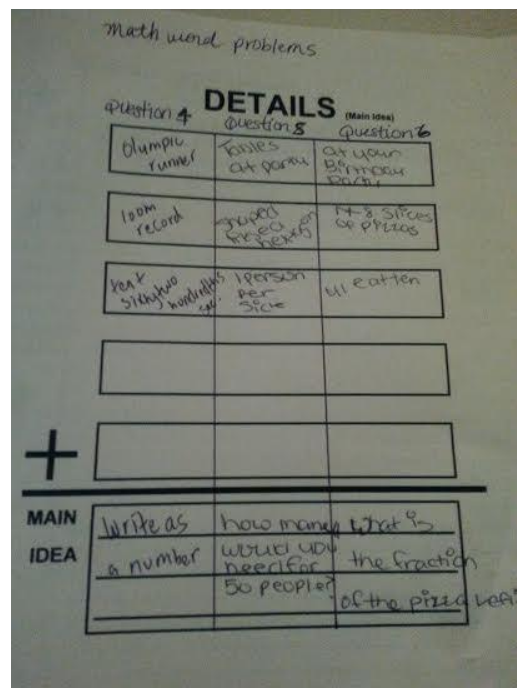 Math word problems
DETAILS (Main Idea)
Question 4 Question 5 Question 6
Olympic runner
Tables at
at your Birthday Party
100m record
slices of pizzas
sixty two hundredths
1 person per side
41 eatten
+
MAIN IDEA
Write as a number
how many would you need for 50 people?
What is the fraction of the pizza left?